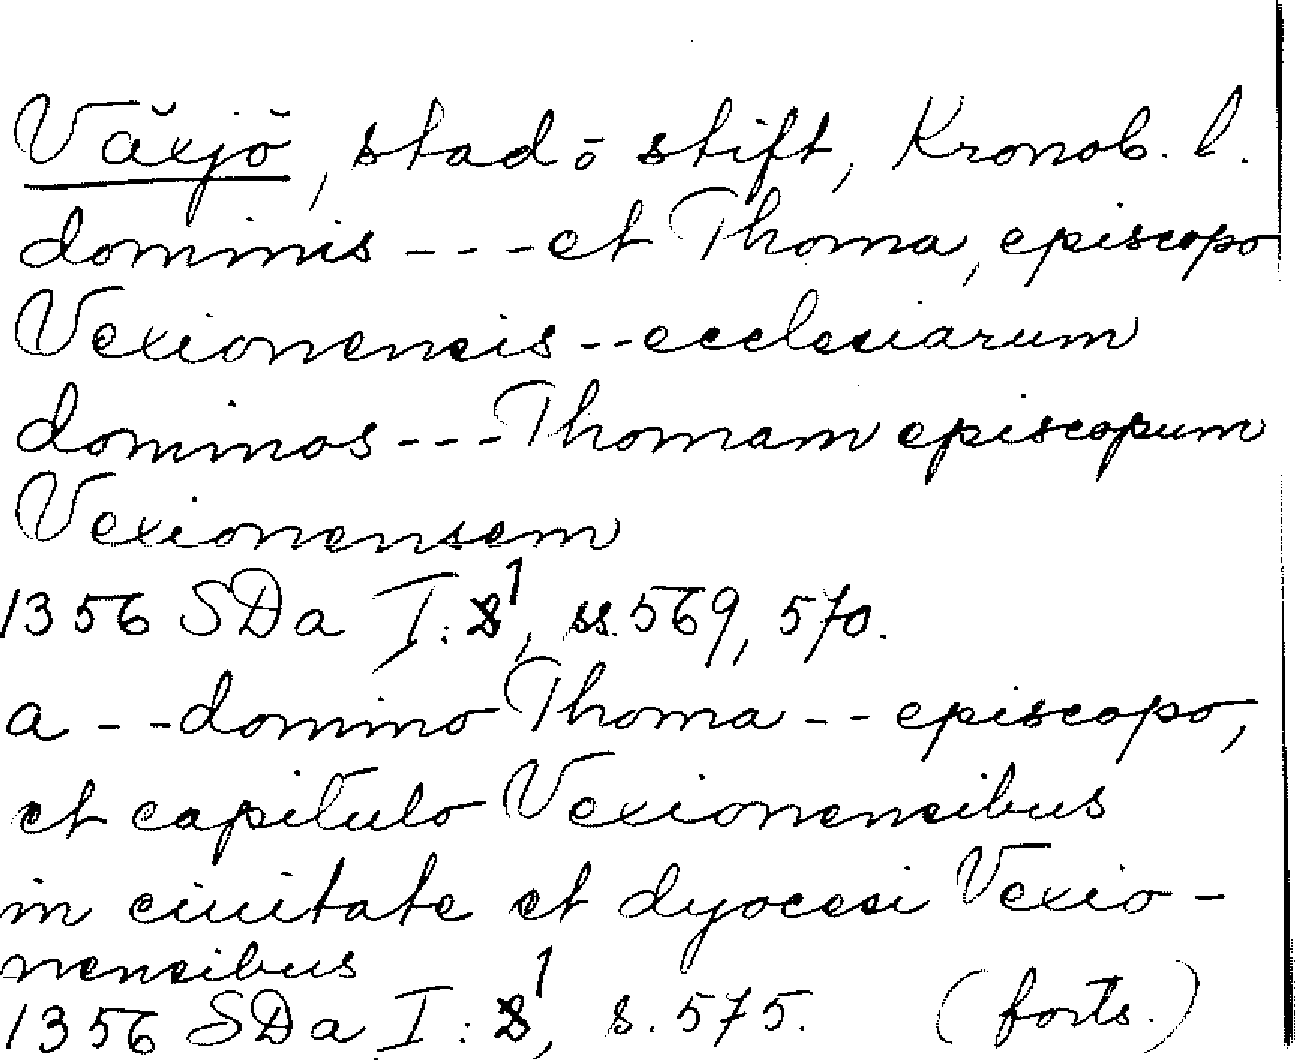 Växjö, stad o stift, Kronob. l.
dominis --- et Thoma, episcopo
Vexionensis -- ecclesiarum
dominos --- Thomam episcopum
Vexionensem
1356 SDa I: 1, ss. 569, 570.
a -- domino Thoma -- episcopo,
et capitulo Vexionensibus
in ciuitate et dyocesi Vexio-
nensibus
1356 SDa I: 1, s. 575. (forts.)